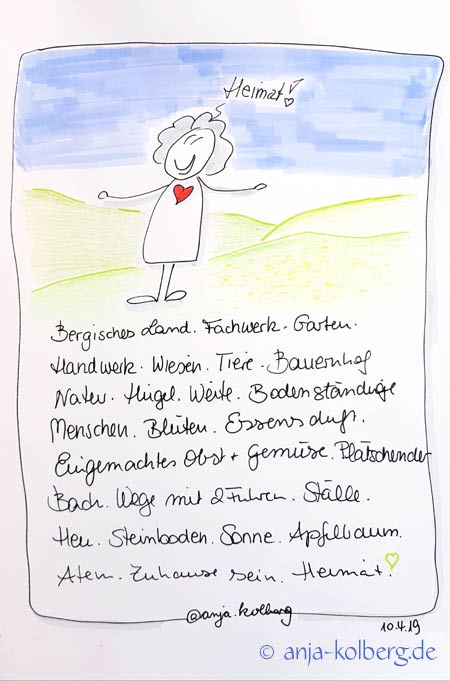 Heimat!
Bergisches Land. Fachwerk. Garten.
Handwerk. Wiesen. Tiere. Bauernhof
Natur. Hügel. Weite. Bodenständige
Menschen. Blüten. Essensduft.
Eingemachtes Obst + Gemüse. Plätschernder
Bach. Wege mit 2 Furchen. Ställe.
Heu. Steinboden. Sonne. Apfelbaum.
Atem. Zuhause sein. Heimat.
@anja.kolberg
10.4.19
© anja-kolberg.de